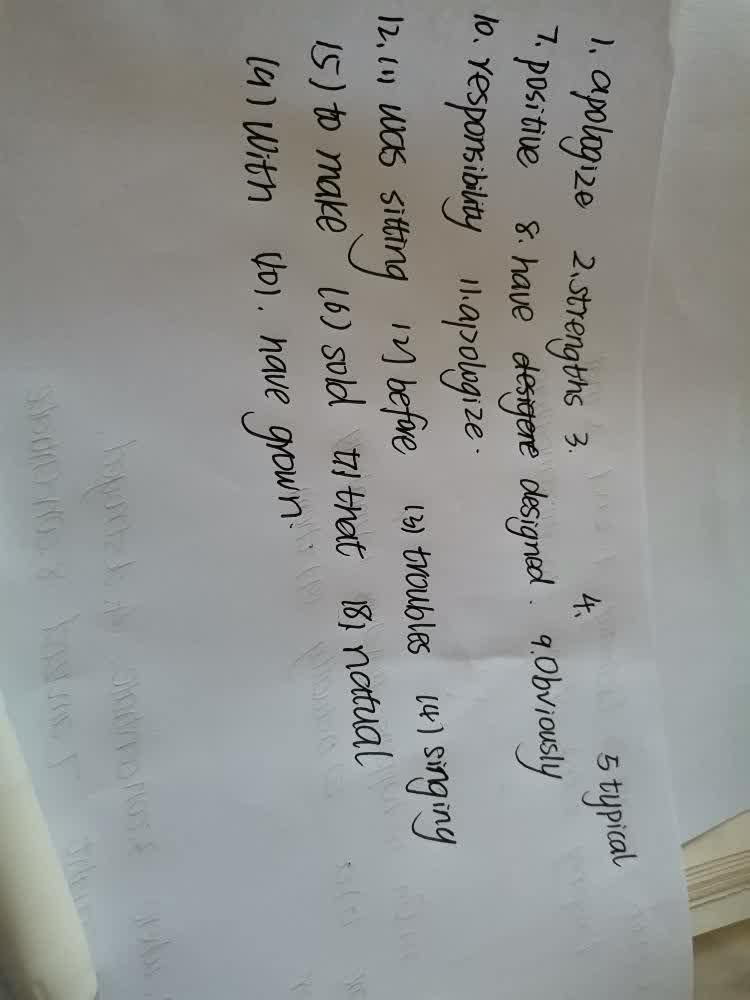 1. apologize 2. strengths 3. 4. 5 typical
7. positive 8. have designed. 9. Obviously
10. responsibility 11. apologize.
12. (1) was sitting (2) before (3) troubles (4) singing
(5) to make (6) sold (7) that (8) natural
(9) With (10). have grown.